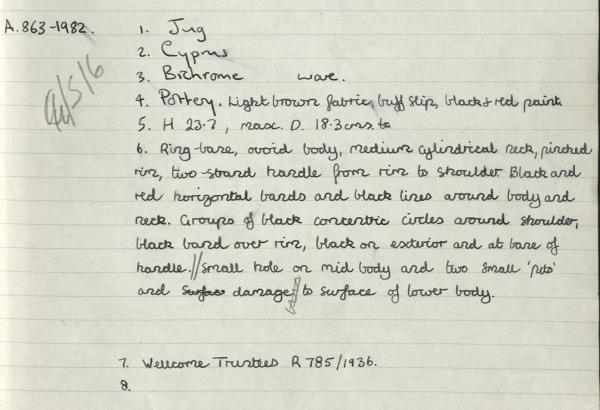 A.863-1982. 1. Jug
2. Cyprus
3. Bichrome ware.
4. Pottery. Light brown fabric, buff slip, black & red paint
5. H 23.2, max. D. 18.3 cms. to
6. Ring-base, ovoid body, medium cylindrical neck, pinched
rim, two-strand handle from rim to shoulder Black and
red horizontal bands and black lines around body and
neck. Groups of black concentric circles around shoulder,
black band over rim, black on exterior and at base of
handle. // small hole on mid body and two small 'pits'
and surface damage // to surface of lower body.
7. Wellcome Trustees R 785/1936.
8.